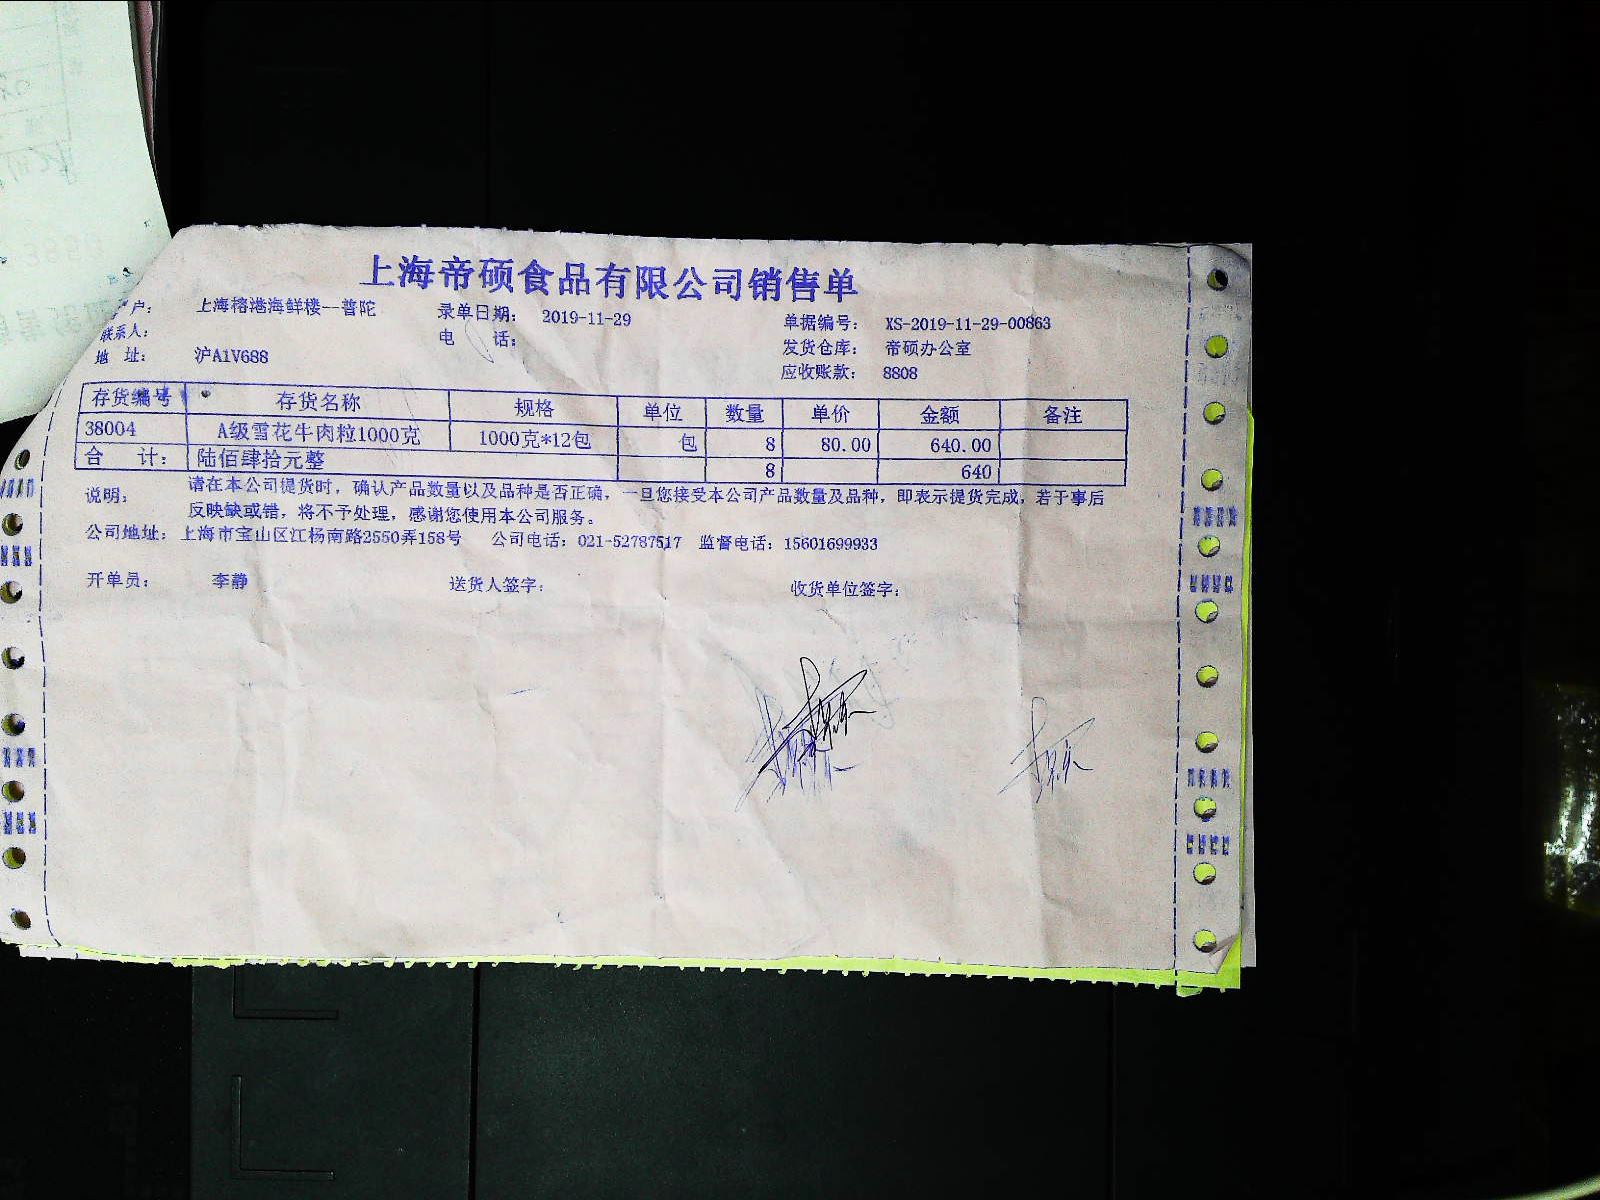 上海帝硕食品有限公司销售单
户： 上海榕港海鲜楼--普陀 录单日期： 2019-11-29 单据编号： XS-2019-11-29-00863
联系人： 电 话： 发货仓库： 帝硕办公室
地 址： 沪A1V688 应收账款： 8808
存货编号 存货名称 规格 单位 数量 单价 金额 备注
38004 A级雪花牛肉粒1000克 1000克*12包 包 8 80.00 640.00
合 计： 陆佰肆拾元整 8 640
说明： 请在本公司提货时，确认产品数量以及品种是否正确，一旦您接受本公司产品数量及品种，即表示提货完成，若于事后
反映缺或错，将不予处理，感谢您使用本公司服务。
公司地址： 上海市宝山区江杨南路2550弄158号 公司电话：021-52787517 监督电话：15601699933
开单员： 李静 送货人签字： 收货单位签字：